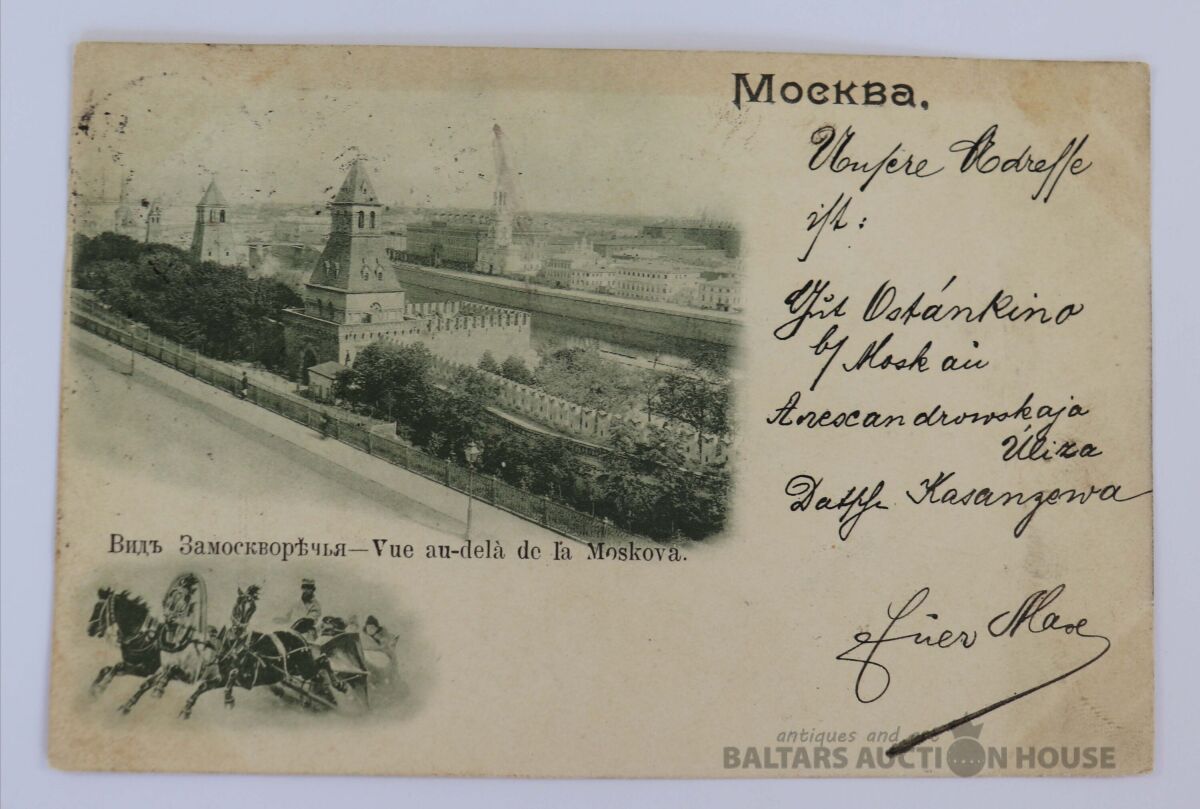 Москва.
Unsere Adresse
ist:
Gut Ostánkino
b/ Moskau
Alexandrowskaja
Úliza
Datsche Kasanzewa
Euer Max
Видъ Замоскворѣчья—Vue au-delà de la Moskova.
antiques and art
BALTARS AUCTION HOUSE